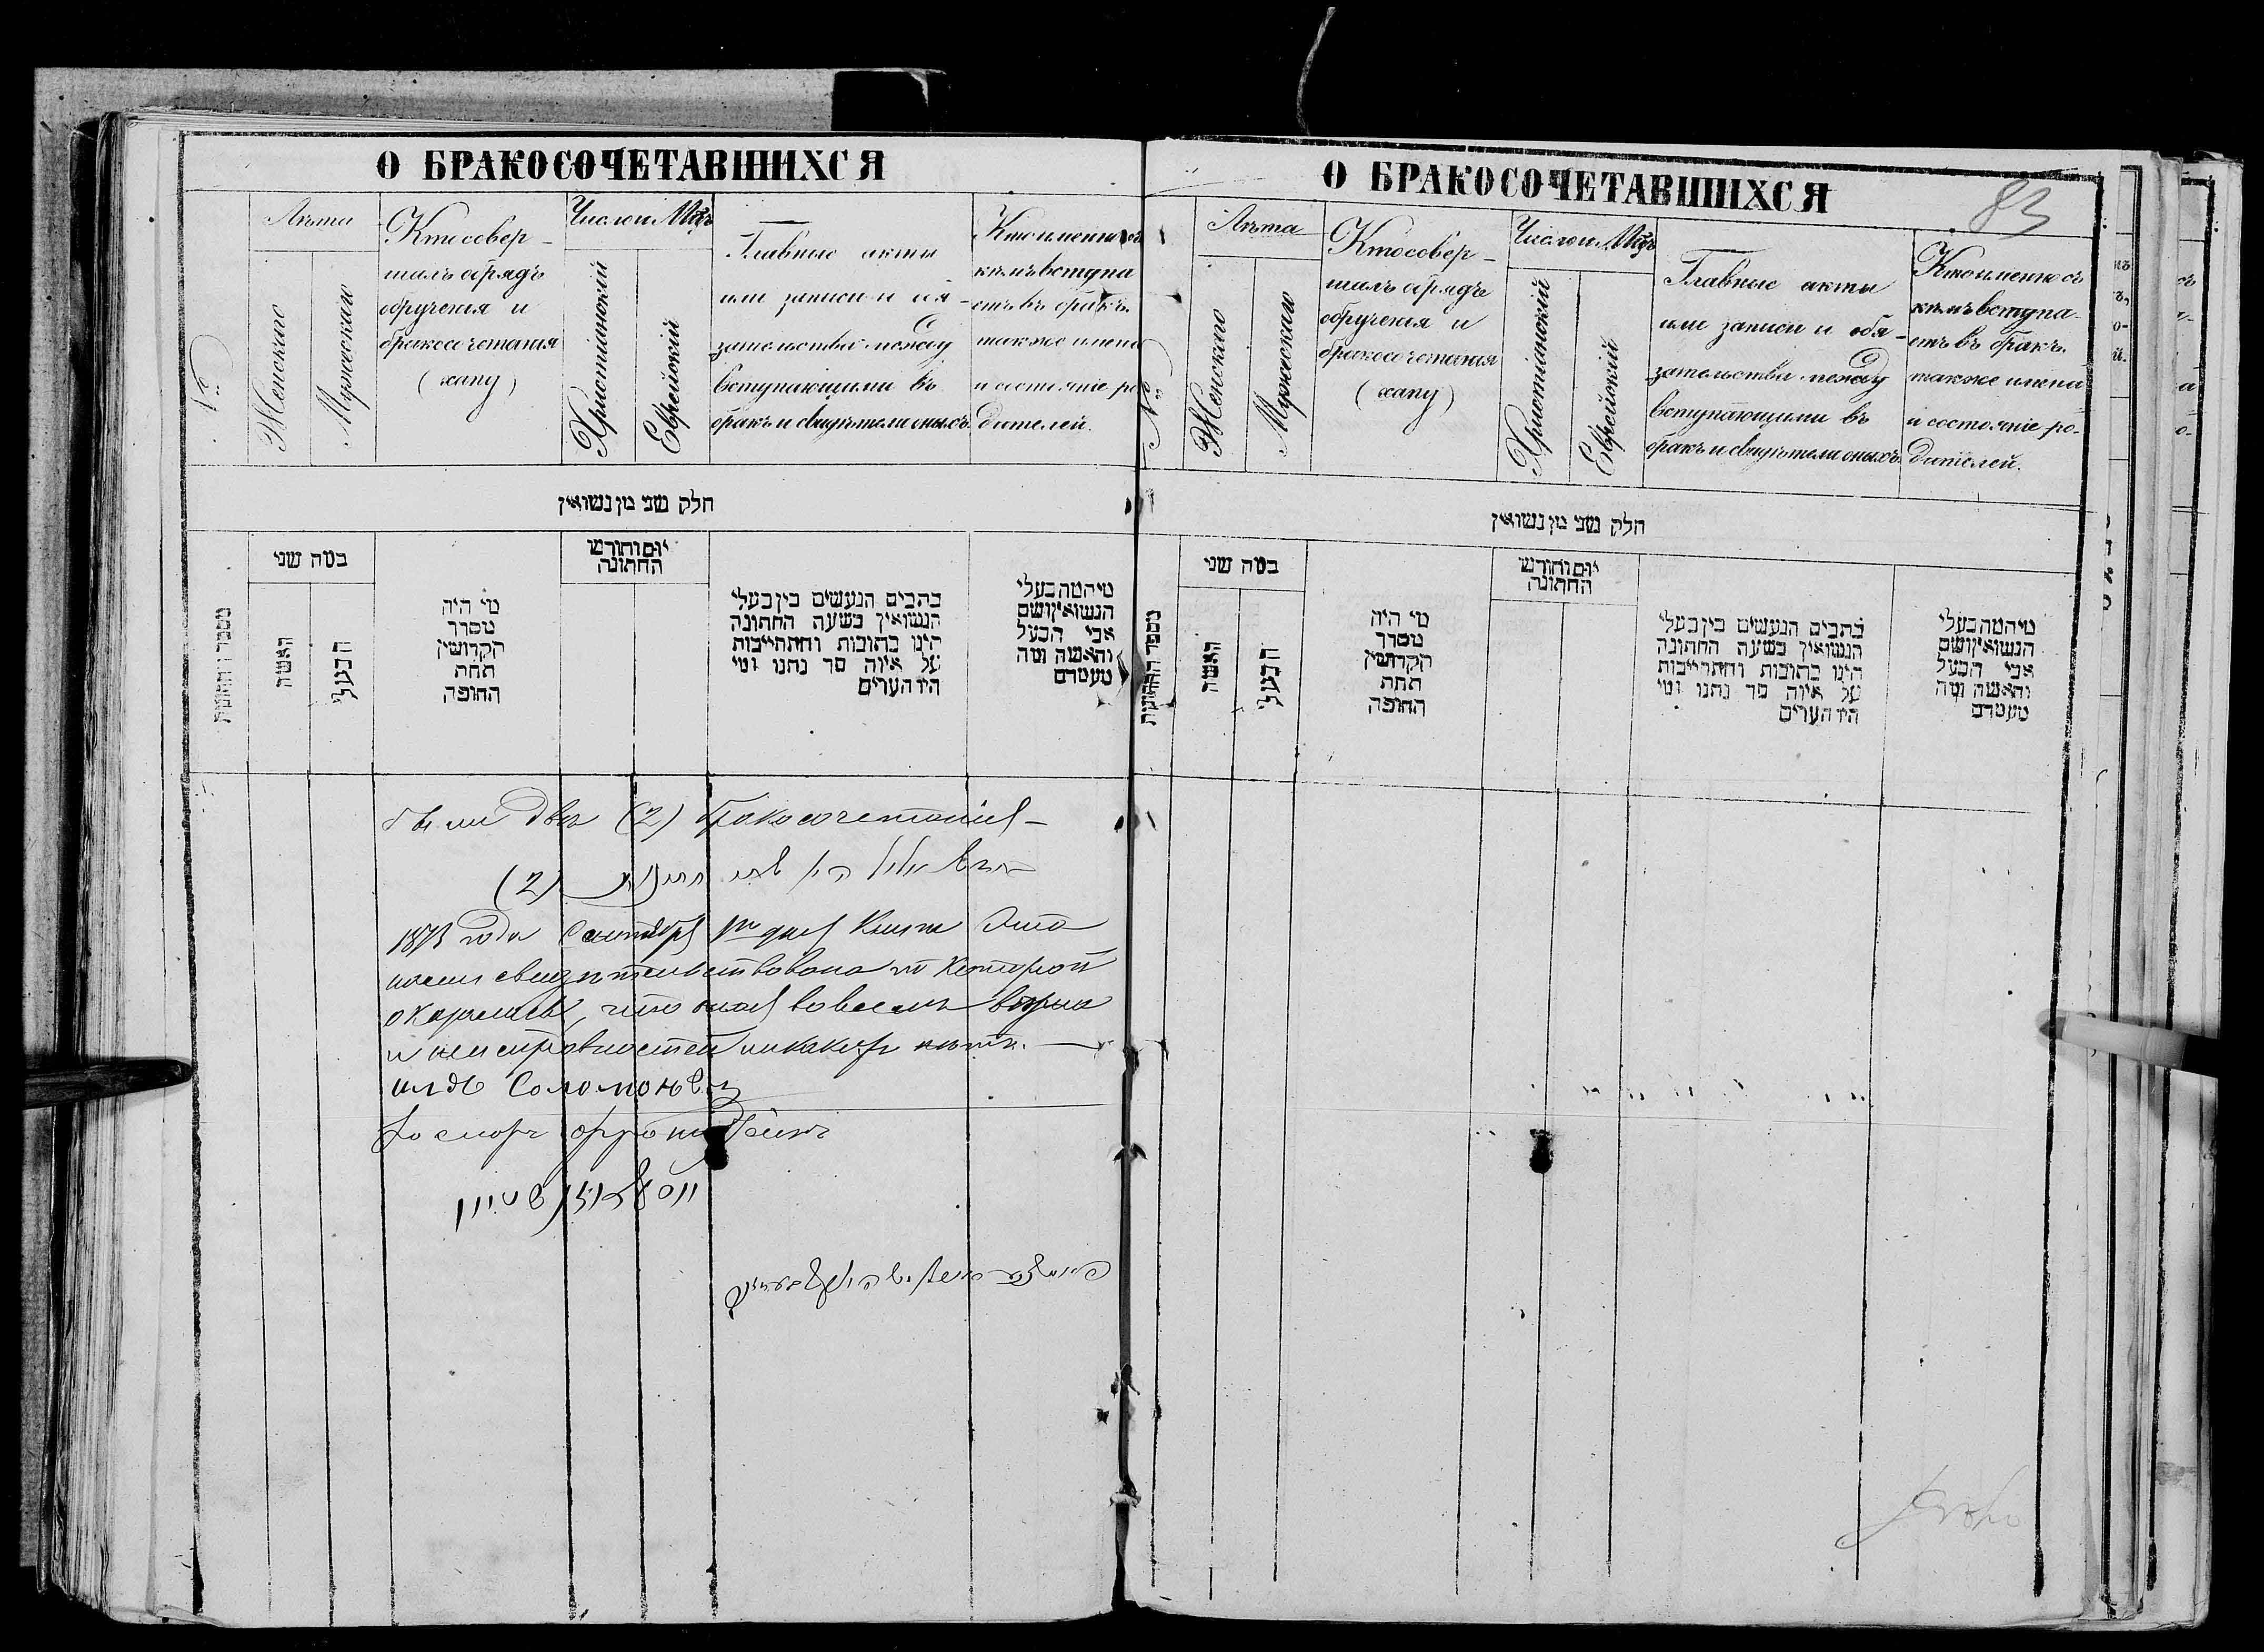 О БРАКОСОЧЕТАВШИХСЯ
№
Лѣта
Женскаго
Мужескаго
Кто совер-
шалъ обрядъ
обрученія и
бракосочетанія
(хапу)
Число и Мцъ
Христіанскій
Еврейскій
Главные акты
или записи и обя-
зательства между
вступающими въ
бракъ и свидѣтели оныхъ.
Кто именно съ
кѣмъ вступа
етъ въ бракъ.
также имена
и состояніе ро
дителей.
חלק שני מן נשואין
מספר החתונות
במה שני
האשה
הבעל
מי היה
מסדר
הקדושין
תחת
החופה
יום וחודש
החתונה
כתבים הנעשים בין בעלי
הנשואין בשעה החתונה
הינו כתובות והתחייבות
על איזה סך נתנו ומי
היו הערים
מיהמה בעלי
הנשואין ושם
אבי הבעל
והאשה ומה
מעמדם
были два (2) бракосочетанія –
(2)
1873 года Сентября 1го дня Книга Эта
нами свидѣтельствована по которой
оказалось, что оная во всемъ вѣрна
и неисправностей никакихъ нѣтъ. —
Соломонов
О БРАКОСОЧЕТАВШИХСЯ
83
№
Лѣта
Женскаго
Мужескаго
Кто совер-
шалъ обрядъ
обрученія и
бракосочетанія
(хапу)
Число и Мцъ
Христіанскій
Еврейскій
Главные акты
или записи и обя-
зательства между
вступающими въ
бракъ и свидѣтели оныхъ.
Кто именно съ
кѣмъ вступа-
етъ въ бракъ.
также имена
и состояніе ро-
дителей.
חלק שני מן נשואין
מספר החתונות
במה שני
האשה
הבעל
מי היה
מסדר
הקדושין
תחת
החופה
יום וחודש
החתונה
כתבים הנעשים בין בעלי
הנשואין בשעה החתונה
הינו כתובות והתחייבות
על איזה סך נתנו ומי
היו הערים
מיהמה בעלי
הנשואין ושם
אבי הבעל
והאשה ומה
מעמדם